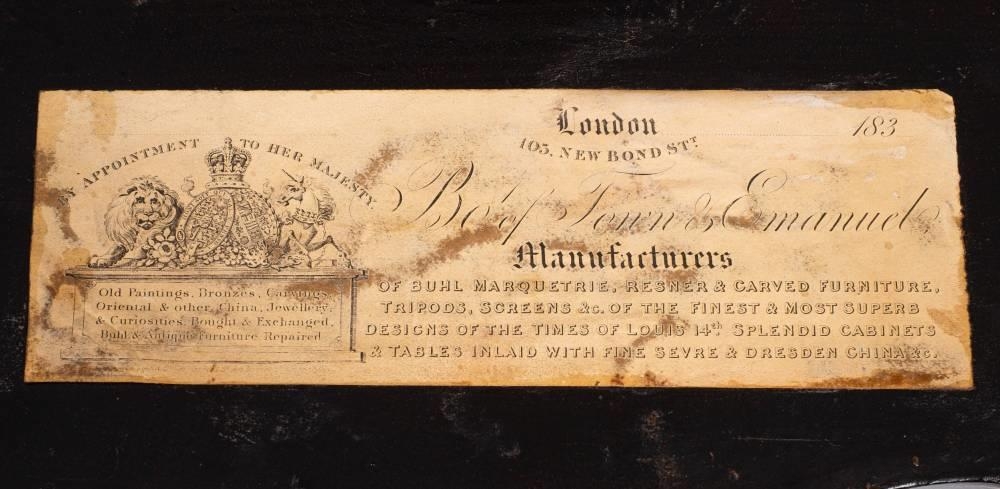 London
183
103, NEW BOND STT
BY APPOINTMENT TO HER MAJESTY.
Bot. of Town & Emanuel
Manufacturers
OF BUHL MARQUETRIE, RESNER & CARVED FURNITURE,
TRIPODS, SCREENS &c. OF THE FINEST & MOST SUPERB
DESIGNS OF THE TIMES OF LOUIS 14th SPLENDID CABINETS
& TABLES INLAID WITH FINE SEVRE & DRESDEN CHINA &c.
Old Paintings, Bronzes, Carvings,
Oriental & other China, Jewellery,
& Curiosities, Bought & Exchanged,
Buhl & Antique Furniture Repaired